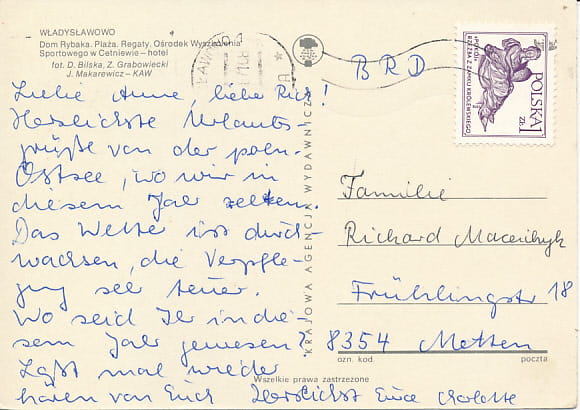 WŁADYSŁAWOWO
Dom Rybaka. Plaża. Regaty. Ośrodek Wyszkolenia
Sportowego w Cetniewie – hotel
fot. D. Bilska, Z. Grabowiecki
J. Makarewicz – KAW
Liebe Anne, lieber Rich!
Herzlichste Urlaubs-
grüße von der poln.
Ostsee, wo wir in
diesem Jahr zelten.
Das Wetter ist durch-
wachsen, die Verpfle-
gung sehr teuer.
Wo seid Ihr in die-
sem Jahr gewesen?
Laßt mal wieder
hören von Euch Herzlichst Eure
KRAJOWA AGENCJA WYDAWNICZA
BRD
POLSKA 1 ZŁ
Familie
Richard
Frühlingstr 18
8354 Metten
ozn. kod. poczta
Wszelkie prawa zastrzeżone